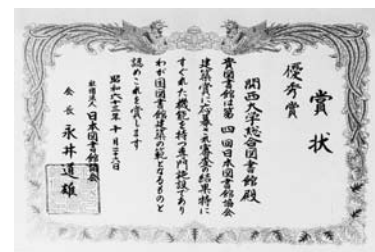 賞状
優秀賞
関西大学総合図書館殿
貴図書館は第四回日本図書館協会
建築賞に応募され審査の結果特に
すぐれた機能を持つ専門施設であり
わが国図書館建築の範となるものと
認めこれを賞します
昭和六十三年十月二十六日
社団法人日本図書館協会
会長永井道雄